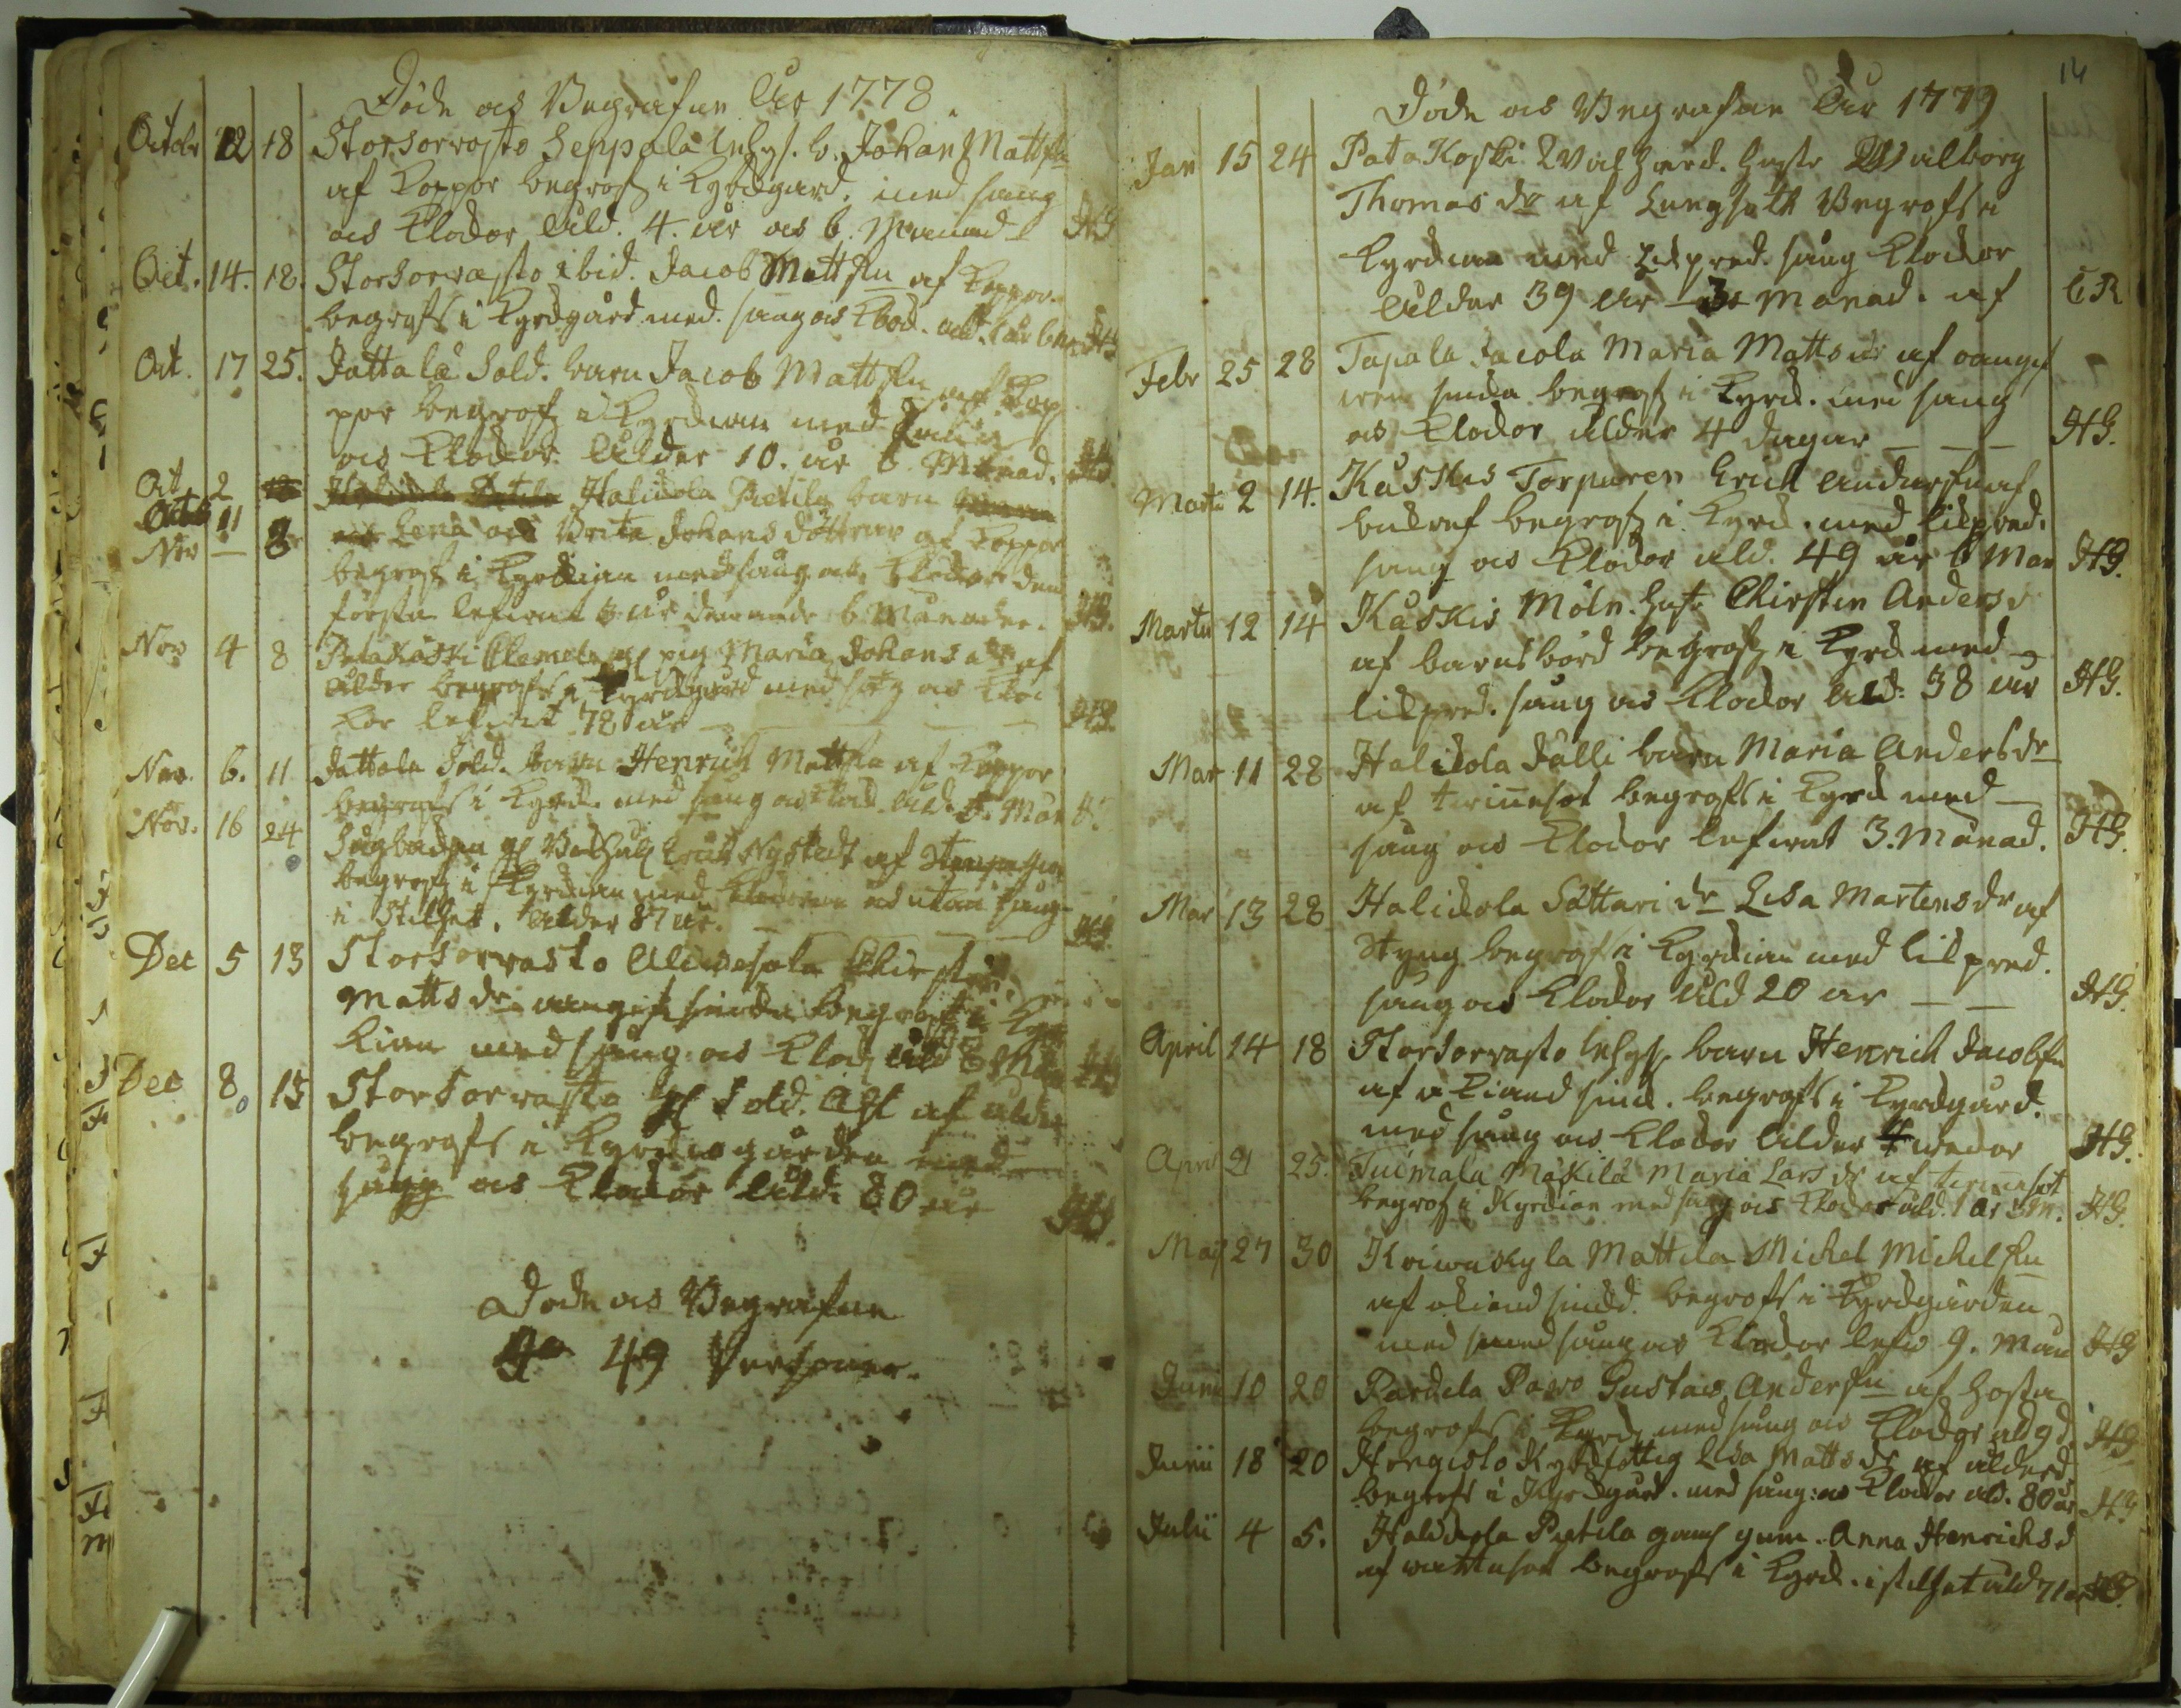 Döde ock Begrafne År 1778.
Octobr 12 18 Storsorvasto Seppala Inhys. b. Johan Mattsn
af Koppor begrofs i Kyrckgård. med sång
ock Klockor Åld. 4. år ock 6. Månad HG
Oct. 14. 18. Storsorvasto ibid. Jacob Mattsn af Koppor
begrofs i Kyrckgård med sång ock Klock. åld. 1 år
Oct. 17 25. Jattala Sold. barn Jacob Mattsn af Kop
por begrofs i Kyrckian med sång
ock Klockor Ålder 10. år 6 Månad.
Oct. 2 Halickola Pietila barn
11
Nov — 8 Lena ock Brita Johansdöttrar af Koppor
begrofs i Kyrckian med sång ock Klockor den
förra lefwat 3 år den andr 6 Månader. HG.
Nov 4 8 Patakåski Clemela pig Maria Johansdr af
ålder begrofs i Kyrckgård med sång ock Kloc
kor lefwat 78 år — — HG.
Nov. 6. 11 Jattala Sold. barn Henrich Mattsn af Koppor
begrofs i Kyrck. med sång ock Klock. Åld. Mån
Nov. 16 24 Erich Nystedt af
begrofs i Kyrckian med utan sång
i Stilhet. Ålder 87 år. — — HG.
Dec 5 13 Storsorvasto Christin
Matts dr. begrofs i Kyrc
kian med sång ock Klock Åld Mån HG
Dec 8 13 Storsorvasto Sold. af ålder
begrofs i Kyrckiogården med
sång ock Klockor Åld. 80 år HG.
Döde ock Begrafne
49 Personer.
14
Döde ock Begrafne År 1779
Jan 15 24 Pata Koski Hustr Walborg
Thomas dr af Lungsott Begrofs i
Kyrckian med Likpred. sång Klockor
Ålder 39 År 3 Månad. af CR
Febr 25 28 Tapala Jacola Maria Matts dr af oangif
wen siuka begrofs i Kyrck. med sång
ock Klockor ålder 4 dagar — — — HG.
Marti 2 14. Kåskis Torparen Erich Andersn af
begrofs i Kyrck. med likpred.
sång ock Klockor åld. 49 år 6 Mån HG.
Marti 12 14 Kåskis Möln. hust. Christin Andersd
af barnsbörd begrofs i Kyrck med
likpred. sång ock Klockor Åld. 38 år HG.
Mar 11 28 Halickola Jälli barn Maria Andersdr
af twinesot begrofs i Kyrck med —
sång ock Klockor lefwat 3. Månad. HG.
Mar 13 28 Halickola Sattari dr Lisa Mårtensdr af
Styng begrofs i Kyrckian med likpred.
sång ock Klockor Åld 20 år — — HG.
April 14 18 Storsorvasto Inhys barn Henrich Jacobsn
af okiand siuk. begrofs i Kyrckgård.
med sång ock Klockor Ålder 4 weckor HG.
April 21 25. Tuimala Mäkilä Maria Lars dr af twinesot
begrofs i Kyrckian med sång ock Klockor åld. 1 år 3 M. HG.
Maj 27 30 Koiwukyla Mattila Michel Michelsn
af okiend siukd. begrofs i Kyrckgården
med sång ock Klockor lefw 9. Mån HG
Junii 10 20 Pardela Pawo Gustaw Andersn af hosta
begrofs i Kyrck med sång ock Klockor åld 9 d. HG
Junii 18 20 Hongisto Kyrckfattig Lisa Matts dr af ålderd
begrofs i Kyrckgård. med sång ock Klockor åld. 80 år HG
Julii 4 5. Halickola Pietila gaml gum. Anna Henricksd
af wattusot begrofs i Kyrck. i stilhet åld 71 år HG.